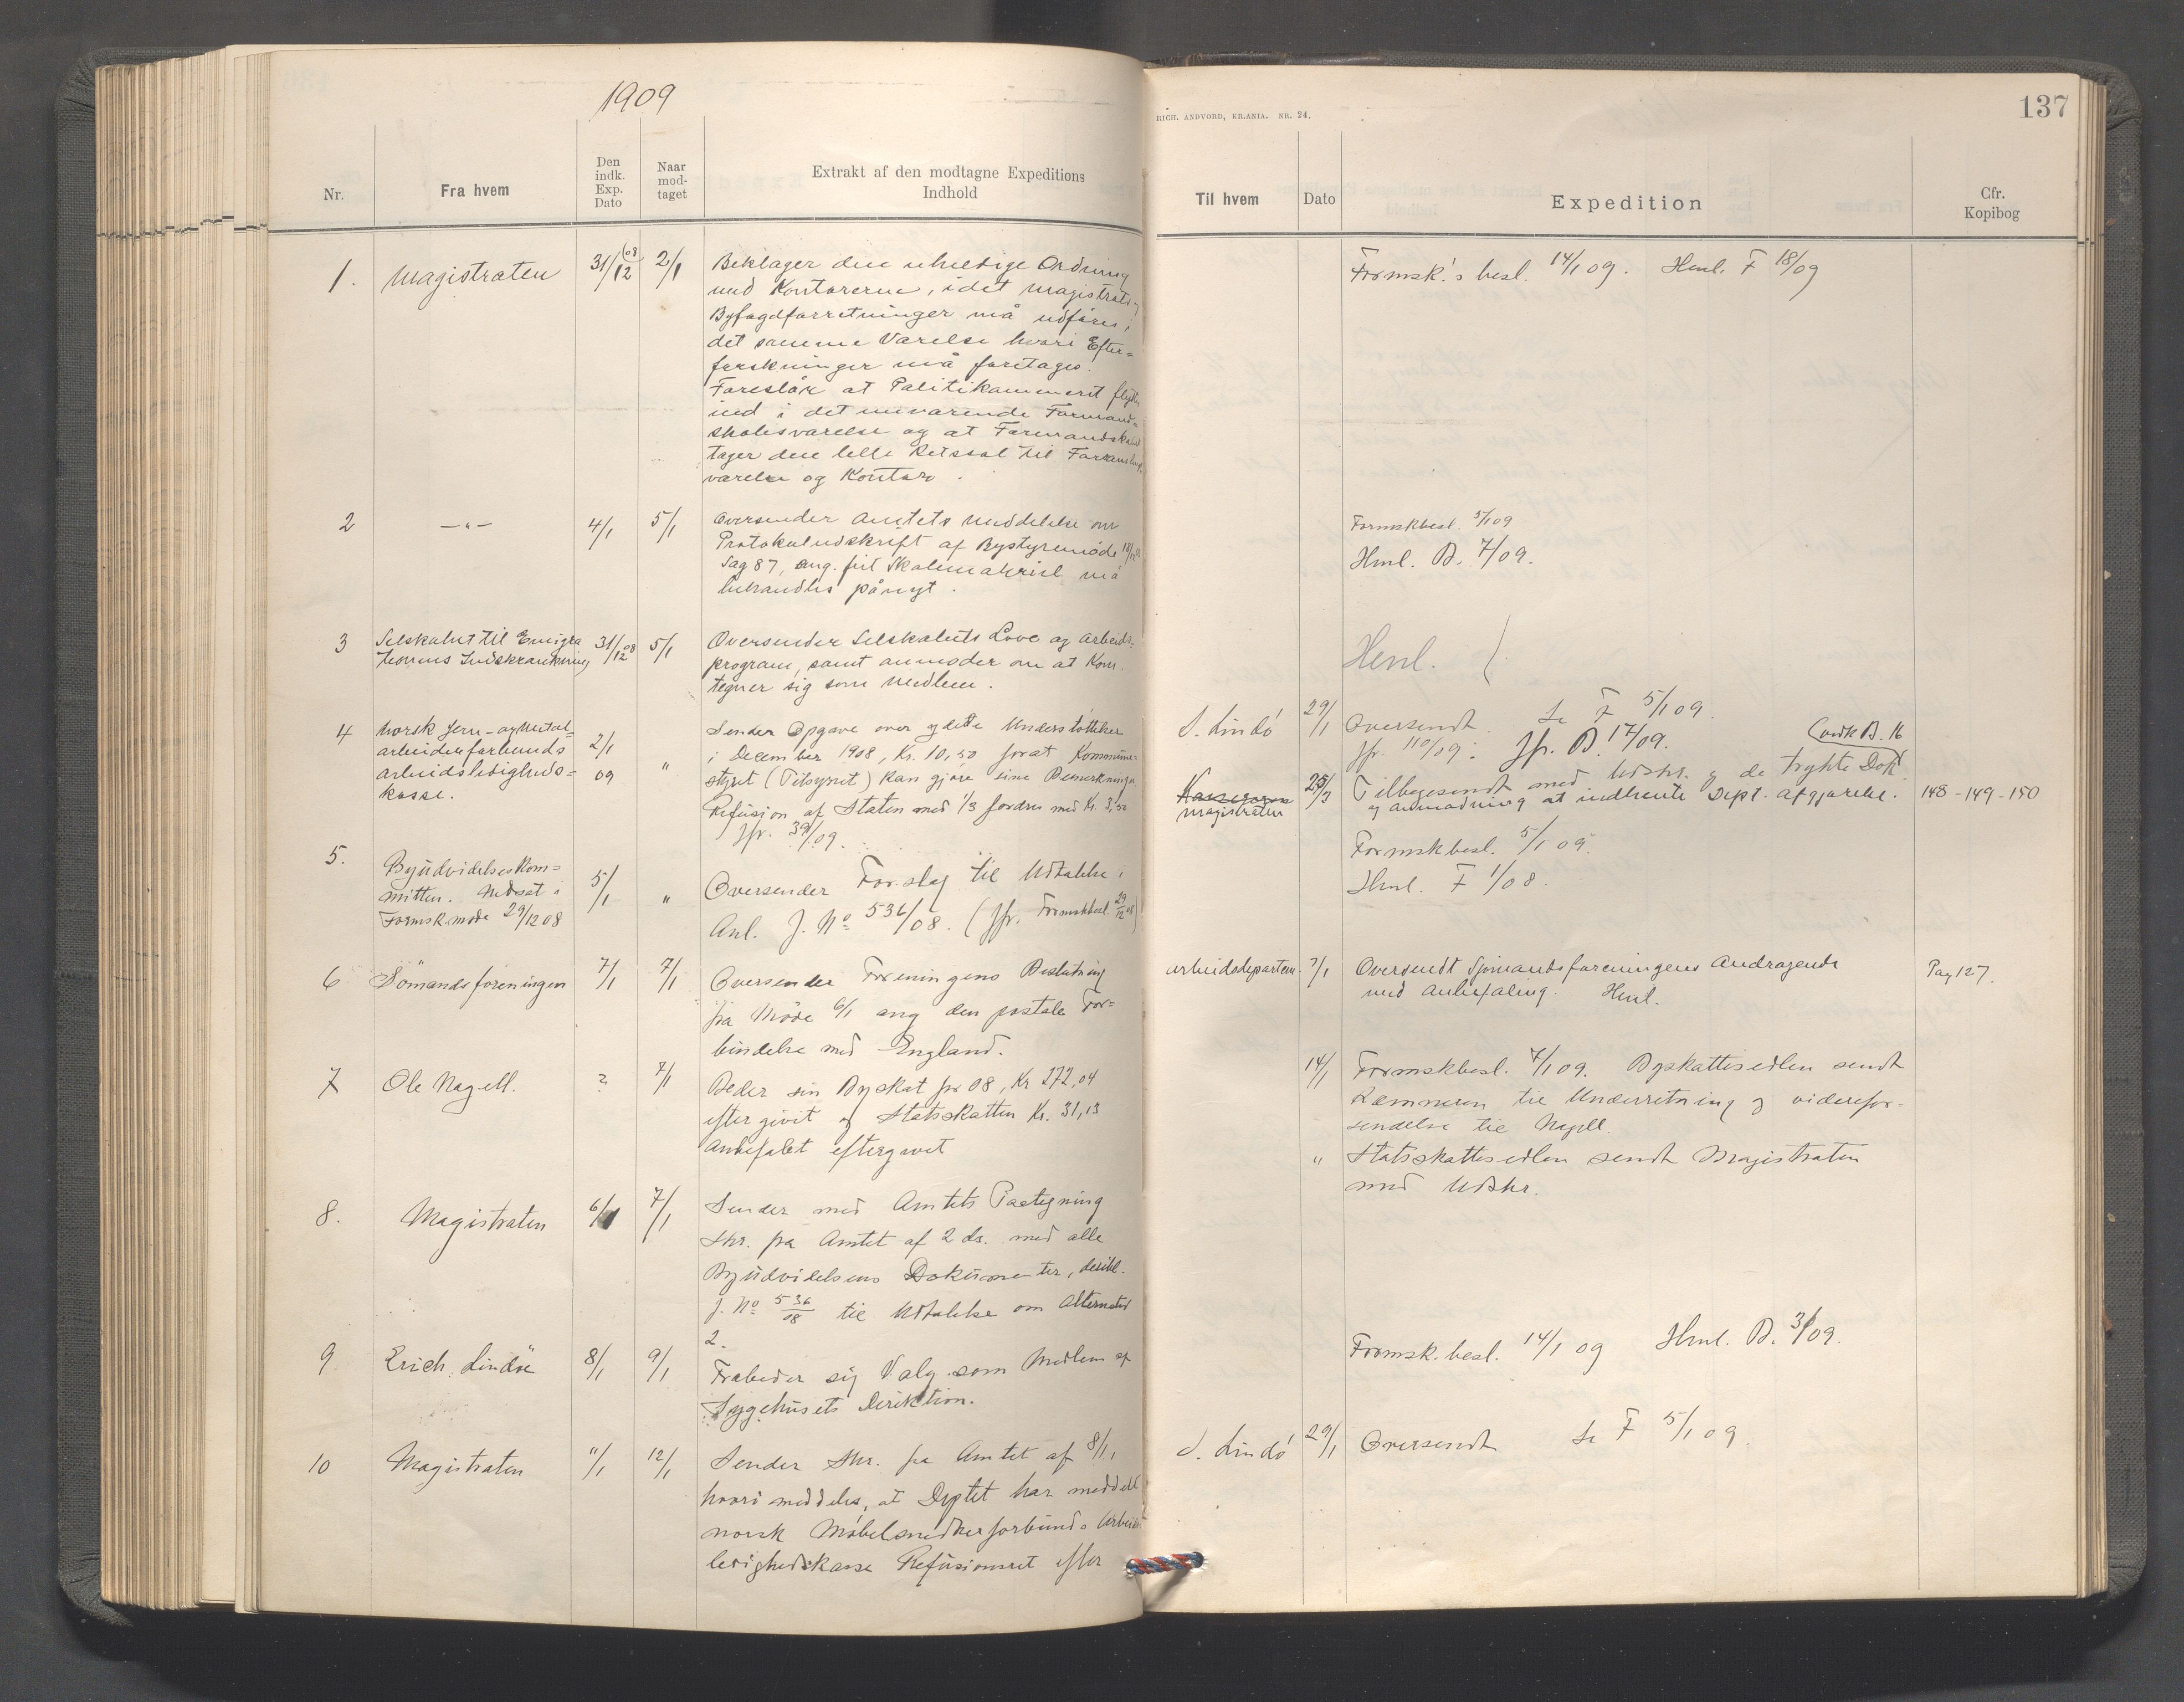 1909
Nr.
Fra hvem
Den
indk.
Exp.
Dato
Naar
mod-
taget
Extrakt af den modtagne Expeditions
Indhold
1.
Magistraten
31/12 08
2/1
Beklager den uheldige Ordning
med Kontorerne, idet Magistrats og
Byfogdforretninger må udføres i
det samme Værelse hvori Efter=
forskninger må foretages.
Foreslår at Politikammeret flyttes
ind i det nuværende Formand=
skabsværelse og at Formandskabet
tager den lille Retssal til
værelse og Kontor.
2
—"—
4/1
5/1
Oversender Amtets Meddelelse om
Protokoludskrift af Bystyremøde
Sag 87, ang. frit Skolemateriel må
behandles pånyt.
3
Selskabet til Emigra
tionens Indskrænkning
31/12 08
5/1
Oversender Selskabets Love og Arbeids-
program, samt anmoder om at Kom.
tegner sig som Medlem.
4
Norsk Jern- og Metal=
arbeiderforbunds
arbeidsledigheds=
kasse.
2/1
09
"
Sender Opgave over ydede Understøttelser
i December 1908, Kr. 10,50 forat Kommune-
styret (Tilsynet) kan gjøre sine Bemærkninger
Refusion af Staten med 1/3 fordres med Kr. 3,50
Jfr. 39/09.
5.
Byudvidelseskom=
mitten. Nedsat i
Formsk.møde 29/12 08
5/1
"
Oversender Forslag til Udtalelse i
Anl. J. No 536/08. (Jfr. Formskbesl. 29/12 08)
6
Sömandsforeningen
7/1
7/1
Oversender Foreningens Beslutning
fra Möde 6/1 ang den postale For=
bindelse med England.
7
Ole Nagell.
?
7/1
Beder sin Byskat for 08, Kr 272,04
eftergivet og Statsskatten Kr. 31,13
anbefalet eftergivet
8.
Magistraten
6/1
7/1
Sender med Amtets Paategning
Skr. fra Amtet af 2 ds. med alle
Byudvidelsens Dokumenter, deribl.
J. No 536/08 til Udtalelse om Alternativ
2.
9
Erich. Lindöe
8/1
9/1
Frabeder sig Valg som Medlem af
Sygehusets Direktion.
10
Magistraten
11/1
12/1
Sender Skr. fra Amtet af 8/1,
hvori meddeles, at Deptet har meddelt
norsk Möbelsnedkerforbunds Arbeids
ledighedskasse Refusionsret efter
RICH. ANDVORD, KR.ANIA. NR. 24.
137
Til hvem
Dato
Expedition
Cfr.
Kopibog
Formsk.'s besl. 14/1 09. Henl. F 18/09
Formskbesl. 5/1 09
Henl. B. 7/09.
Henl. (
S. Lindö
29/1
Oversendt. Se F 5/1 09.
Jfr. 110/19: Jfr. B. 17/09.
(vedk B. 16
Magistraten
25/3
Tilbagesendt med Udskr. og de trykte Dok
og Anmodning at indhente Dept. Afgjørelse.
148 - 149 - 150
Formskbesl. 5/1 09.
Henl. F 1/08.
Arbeidsdepartem.
7/1
Oversendt Sjömandsforeningens Andragende
med Anbefaling. Henl.
Pag 127.
14/1
Formskbesl. 7/1 09. Byskattesedlen sendt
Kæmneren til Underretning og viderefor-
sendelse til Nagell.
"
Statsskattesedlen sendt Magistraten
med Udskr.
Formsk.besl. 14/1 09 Henl. B. 3/09.
S. Lindö
29/1
Oversendt Se F 5/1 09.